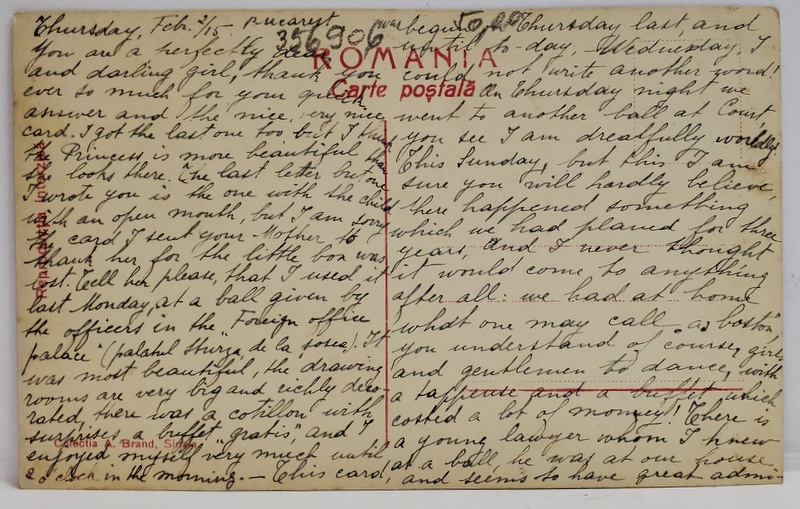 Thursday, Feb. 2/15 Bucarest
356906
50,00
ROMANIA
Carte poștală
You are a perfectly dear
and darling girl, thank you
ever so much for your quick
answer and the nice, very nice
card. I got the last one too but I think
the Princess is more beautiful than
she looks there. The last letter but one
I wrote you is the one with the child
with an open mouth, but I am sorry
card I sent your Mother to
thank her for the little box was
lost. Tell her please, that I used it
last Monday, at a ball given by
the officers in the „Foreign office
palace" (palatul Sturza, de la șosea). It
was most beautiful, the drawing
rooms are very big and richly deco-
rated, there was a cotillon with
surprises a buffet „gratis", and I
enjoyed myself very much until
2 o'clock in the morning. — This card,
was begun on Thursday last, and
until to-day, Wednesday, I
could not write another word!
On Thursday night we
went to another ball at Court
you see I am dreadfully worldly!
This Sunday, but this I am
sure you will hardly believe,
there happened something
which we had planed for three
years, and I never thought
it would come to anything
after all: we had at home
what one may call „a boston",
you understand of course, girls
and gentlemen to dance, with
a tappeuse and a buffet which
costed a lot of money! There is
a young lawyer whom I knew
at a ball, he was at our house
and seems to have great admi-
Colecția A. Brand, Sinaia